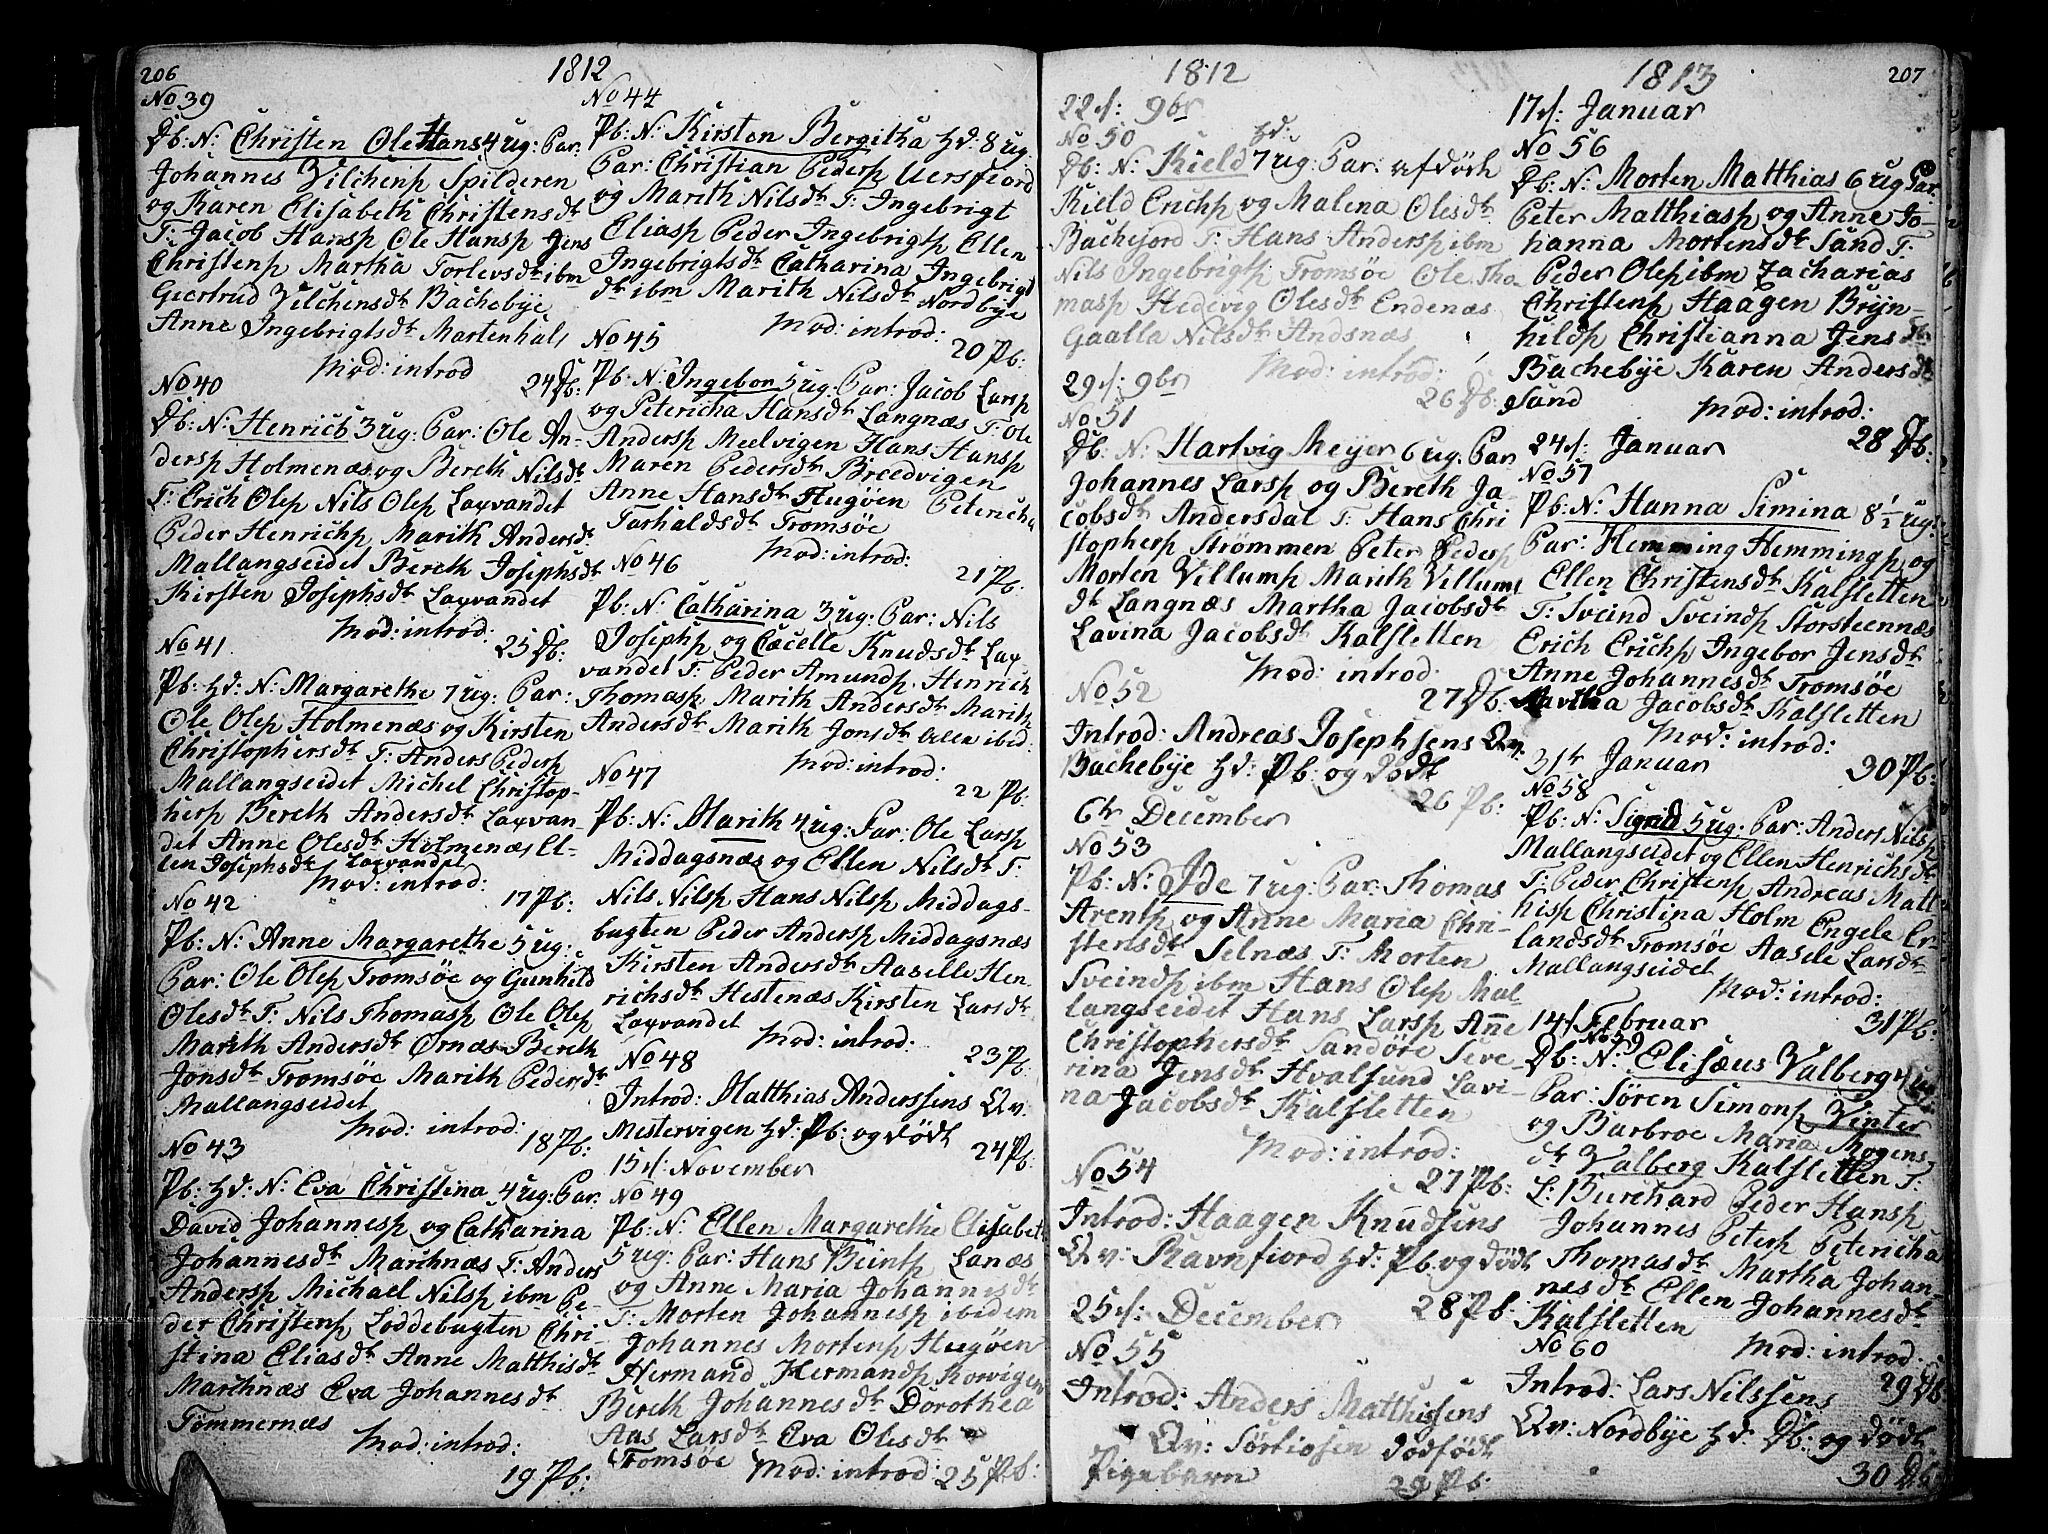 206
1812
No 39
Db: N: Christen Ole Hans 4 ug: Par:
Johannes Vilchensp Spilderen
og Karen Elisabeth Christensdt
T: Jacob Hansp Ole Hansp Jens
Christensp Martha Torlevsdt ibm
Giertrud Vilchensdt Bachebye
Anne Ingebrigtsdt Martenhals
Mod: introd
24 Db:
No 40
Db: N: Henrich 3 ug: Par: Ole An-
dersp Holmenæs og Bereth Nilsdt
T: Erich Olsp Nils Olsp Laxvandet
Peder Henrichsp Marith Andersdt
Mallangseidet Bereth Josephsdt
Kirsten Josephsdt Laxvandet
Mod: introd:
25 Db:
No 41
Pb: hd: N: Margarethe 7 ug: Par:
Ole Olsp Holmenæs og Kirsten
Christophersdt T: Anders Pedersp
Mallangseidet Michel Christop-
hersp Bereth Andersdt Laxvan-
det Anne Olesdt Holmenæs El-
len Josephsdt Laxvandet
Mod: introd:
17 Pb:
No 42
Pb: N: Anne Margarethe 5 ug:
Par: Ole Olsp Tromsöe og Gunhild
Olesdt T: Nils Thomasp Ole Olsp
Marith Andersdt Ørnæs Bereth
Jonsdt Tromsöe Marith Pedersdt
Mallangseidet
Mod: introd:
18 Pb:
No 43
Pb: hd: N: Eva Christina 4 ug: Par:
David Johannesp og Catharina
Johannesdt Marthnæs T: Anders
Andersp Michael Nilsp ibm Pe-
der Christensp Loddebugten Chri-
stina Eliasdt Anne Matthisdt
Marthnæs Eva Johannesdt
Tömmernæs
Mod: introd:
19 Pb:
No 44
Pb: N: Kirsten Bergitha hd: 8 ug
Par: Christian Pedersp Uersfiord
og Marith Nilsdt T: Ingebrigt
Eliasp Peder Ingebrigtsp Ellen
Ingebrigtsdt Catharina Ingebrigt
dt ibm Marith Nilsdt Nordbye
Mod: introd:
20 Pb:
No 45
Pb: N: Ingebor 5 ug: Par: Jacob Larsp
og Petericha Hansdt Langnæs T: Ole
Andersp Meelvigen Hans Hansp
Maren Pedersdt Breedvigen
Anne Hansdt Hugöen Petericha
Tarhaldsdt Tromsöe
Mod: introd:
21 Pb:
No 46
Pb: N: Catharina 3 ug: Par: Nils
Josephsp og Cæcelle Knudsdt Lax-
vandet T: Peder Amundsp Henrich
Thomasp Marith Andersdt Marith
Andersdt Marith Jonsdt Alle ibid:
Mod: introd:
22 Pb:
No 47
Pb: N: Marith 4 ug: Par: Ole Larsp
Middagsnæs og Ellen Nilsdt T:
Nils Nilsp Hans Nilsp Middags-
bugten Peder Andersp Middagsnæs
Kirsten Andersdt Aaselle Hen
richsdt Hestenæs Kirsten Larsdt
Laxvandet
Mod: introd:
23 Pb:
No 48
Introd: Matthias Anderssens Qv:
Mestervigen hd: Pb: og dödt
24 Pb:
15 d: November
No 49
Pb: N: Ellen Margarethe Elisabet
5 ug: Par: Hans Beintsp Lanæs
og Anne Maria Johannesdt
T: Morten Johannesp ibidem
Johannes Mortensp Hugöen
Hermand Hermandsp Korvigen
Bereth Johannesdt Dorothea
Aas Larsdt Eva Olesdt
Tromsöe
Mod: introd:
25 Pb:
1812
22 d: 9br
No 50
hd:
Db: N: Kield 7 ug: Par: afdöde
Kield Erichsp og Malena Olesdt
Bachejord T: Hans Andersp ibm
Nils Ingebrigtsp Tromsöe Ole Tho-
masp Hedevig Olesdt Endenæs
Gaalla Nilsdt Andsnæs
Mod: introd:
26 Db:
29 d: 9br
No 51
Db: N: Hartvig Meyer 6 ug: Par
Johannes Larsp og Bereth Ja-
cobsdt Andersdal T: Hans Chri
stophersp Strömmen Peter Pedersp
Morten Villumsp Marith Villums
dt Langnæs Martha Jacobsdt
Lavina Jacobsdt Kalsletten
Mod: introd:
27 Db:
No 52
Introd: Andreas Josephsens Qv:
Bachebye hd: Pb: og dödt
26 Pb:
6te December
No 53
Pb: N: Ide 7 ug: Par: Thomas
Arentsp og Anne Maria Chri-
stensdt Selnæs T: Morten
Sveindsp ibm Hans Olsp Mal-
langseidet Hans Larsp Anne
Christophersdt Sandöre Seve-
rina Jensdt Hvalsund Lavi-
na Jacobsdt Kalsletten
Mod: introd:
27 Pb:
No 54
Introd: Haagen Knudsens
Qv: Ravnfiord hd: Pb og dödt
28 Pb:
25 d: December
No 55
Introd: Anders Matthissens
Qv: Sörtiosen dödfödt
Pigebarn
29 Pb:
1813
207
17 d: Januar
No 56
Db: N: Morten Matthias 6 ug Par:
Peter Matthiasp og Anne Jo-
hanna Mortensdt Sand T:
Peder Olsp ibm Zacharias
Christensp Haagen Bryn-
hildsp Christianna Jensdt
Bachebye Karen Andersdt
Sand
Mod: introd:
28 Db:
24 d: Januar
No 57
Pb: N: Hanna Simina 8 1/2 ug:
Par: Hemming Hemmingsp og
Ellen Christensdt Kalsletten
T: Sveind Sveindsp Storsteennæs
Erich Erichsp Ingebor Jensdt
Anne Johannesdt Tromsöe
Martha Jacobsdt Kalsletten
Mod: introd:
30 Pb:
31te Januar
No 58
Pb: N: Sigrild 5 ug: Par: Anders Nilsp
Mallangseidet og Ellen Henrichsdt
T: Peder Christensp Andreas Matt
hisp Christina Holm Engele Er-
landsdt Tromsöe Aasele Larsdt
Mallangseidet
Mod: introd:
31 Pb:
14 d Februar
No 59
Db: N: Elisæus Valberg 4 ug
Par: Sören Simonsp Vinter
og Barbroe Maria Mogens
dt Valberg Kalsletten T:
L: Burchard Peder Hansp
Johannes Petersp Petericha
Thomasdt Martha Johan-
nesdt Ellen Johannesdt
Kalsletten
Mod: introd:
29 Db
No 60
Introd: Lars Nilssens
Qv: Nordbye hd: Db: og dödt
30 Db